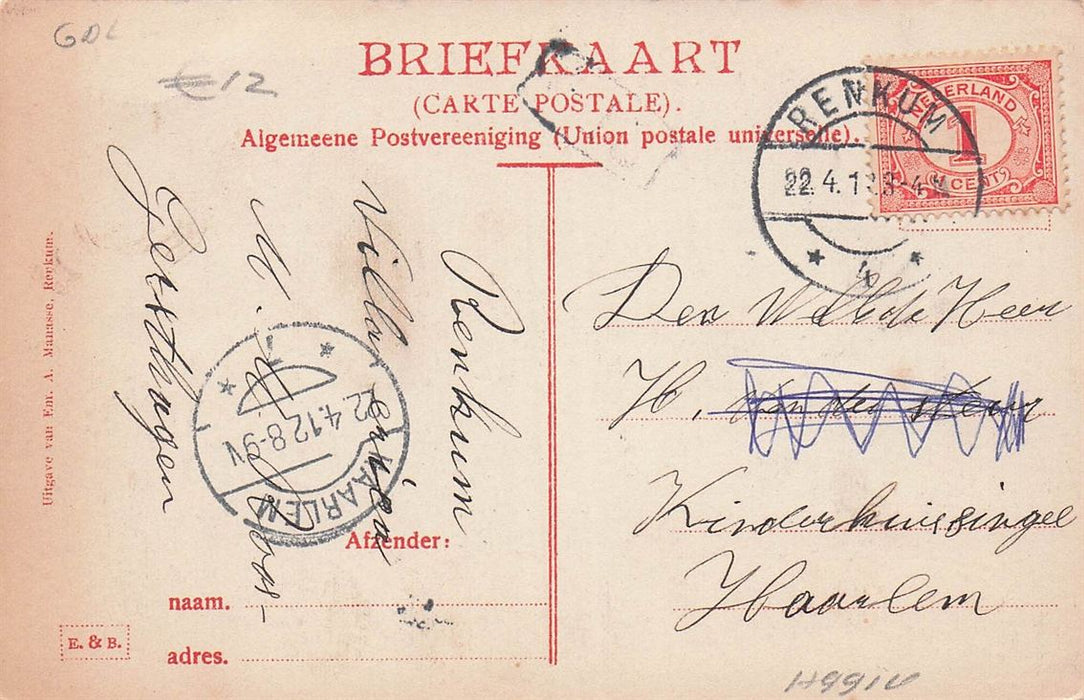 GDL
€12
BRIEFKAART
(CARTE POSTALE).
Algemeene Postvereeniging (Union postale universelle).
NEDERLAND
1
CENT
RENKUM
22.4.1
4
Renkum
Villa
M.
Gersthagen
22.4.12.8-9V
HAARLEM
1
Den WelEd. Heer
H. van der
Kinderhuissingel
Haarlem
Afzender:
naam.
adres.
Uitgave van Em. A. Manasse, Renkum.
E. & B.